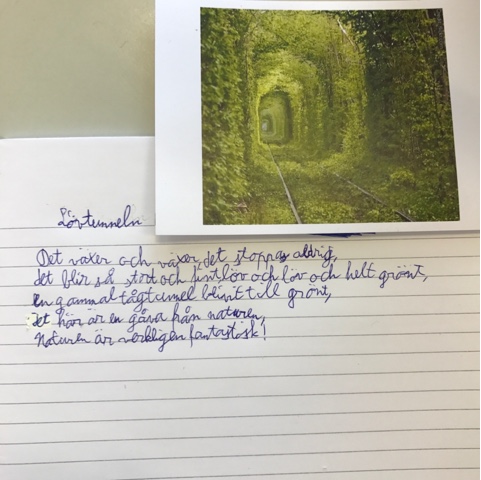 Lövtunneln
Det växer och växer, det stoppas aldrig,
det blir så stort och fint löv och löv och helt grönt,
en gammal tågtunnel blivit till grönt,
det här är en gåva från naturen,
Naturen är verkligen fantastisk!